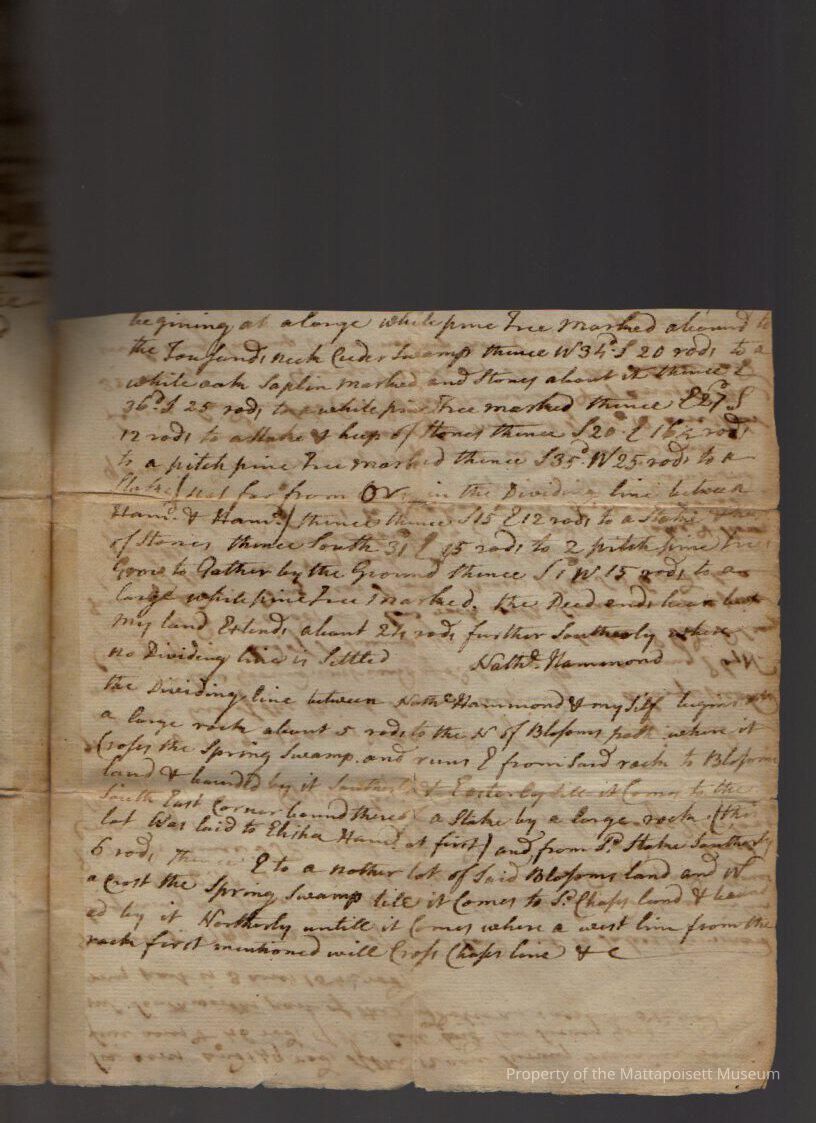 begining at a large white pine Tree marked abound to
the Townlands neck Ceder Swamp thence W 34d S 20 rods to a
white oak Saplin marked and Stones about it thence E
36d S 25 rods to a white pine Tree marked thence E 27d S
12 rods to a Stake & heep of Stones thence S 20 E 16½ rods
to a pitch pine Tree marked thence S 35d W 25 rods to a
Stake (not far from in the Dividing line between
Ham. & Ham.) thence thence S 15 E 12 rods to a Stake
of Stones thence South 31 E 15 rods to 2 pitch pine Trees
Grow to Gather by the Ground thence S 1 W 15 rods to a
large white pine Tree marked. the Deed ends hear but
my land Extends about 2½ rods further Southerly where
no Dividing line is Settled Nathll. Hammond
the Dividing line between Nathll Hammond & my Self begins
a large rock about 5 rods to the N of Blossoms path where it
Crosses the Spring Swamp. and runs E from Said rock to Blossoms
land & bounded by it Southerly & Easterly till it Comes to the
South East Corner bound thereof a Stake by a large rock (this
lot Was laid to Elisha Ham. at first) and from Sd. Stake Southerly
6 rods thence E to a nother lot of Said Blossoms land and W
a crost the Spring Swamp till it Comes to Sd. Chaps land & bound
ed by it Northerly untill it Comes where a west line from the
rock first mentioned will Cross Chaps line & c
Property of the Mattapoisett Museum